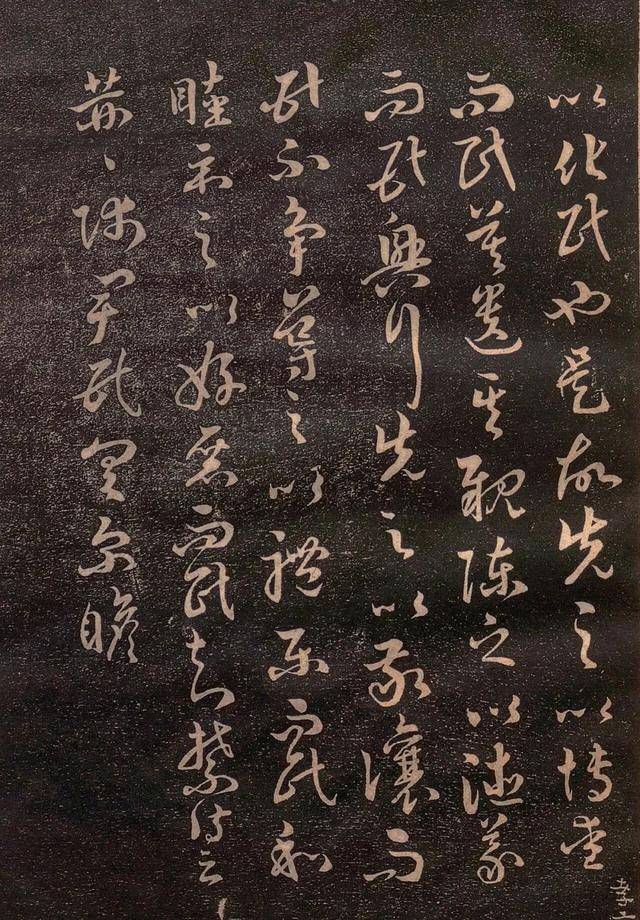 以化民也是故先之以博愛
而民莫遺其親陳之以德義
而民興行先之以敬讓而
民不爭導之以禮樂而民和
睦示之以好惡而民知禁詩云
赫〻師尹民具爾瞻